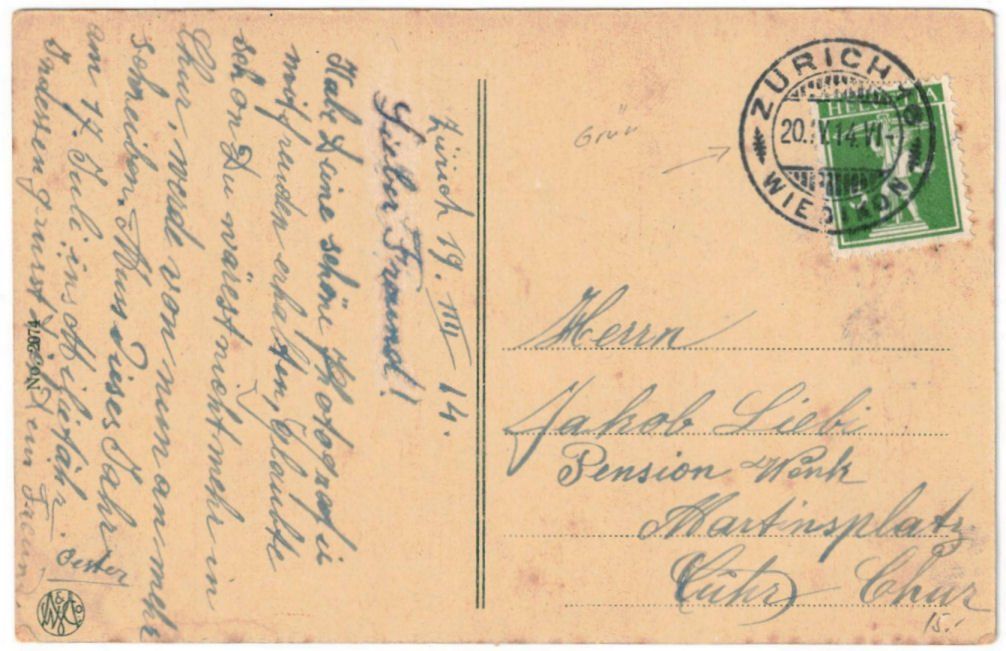 Zürich 19. IIII 14.
Lieber Freund!
Habe Deine schöne Photografie
mit freuden erhalten, Glaubte
schon Du wärest nicht mehr in
Chur, werde von nun an mehr
schreiben. Muss dieses Jahr
am 17. Juli ins Militär.
Indessen grüsst Dich Dein Freund
No. 2074
ZÜRICH
20.IV.14.VI-
WIEDIKON
HELVETIA
Herrn
Jakob Liebi
Pension Wenk
Martinsplatz
(Cuhr) Chur
15.-